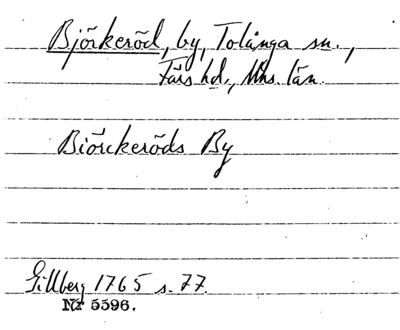 Björkeröd, by, Tolånga sn.,
Färs hd., Mhs. län.
Biörckeröds By
Gillberg 1765 s. 77.
Nr 5596.